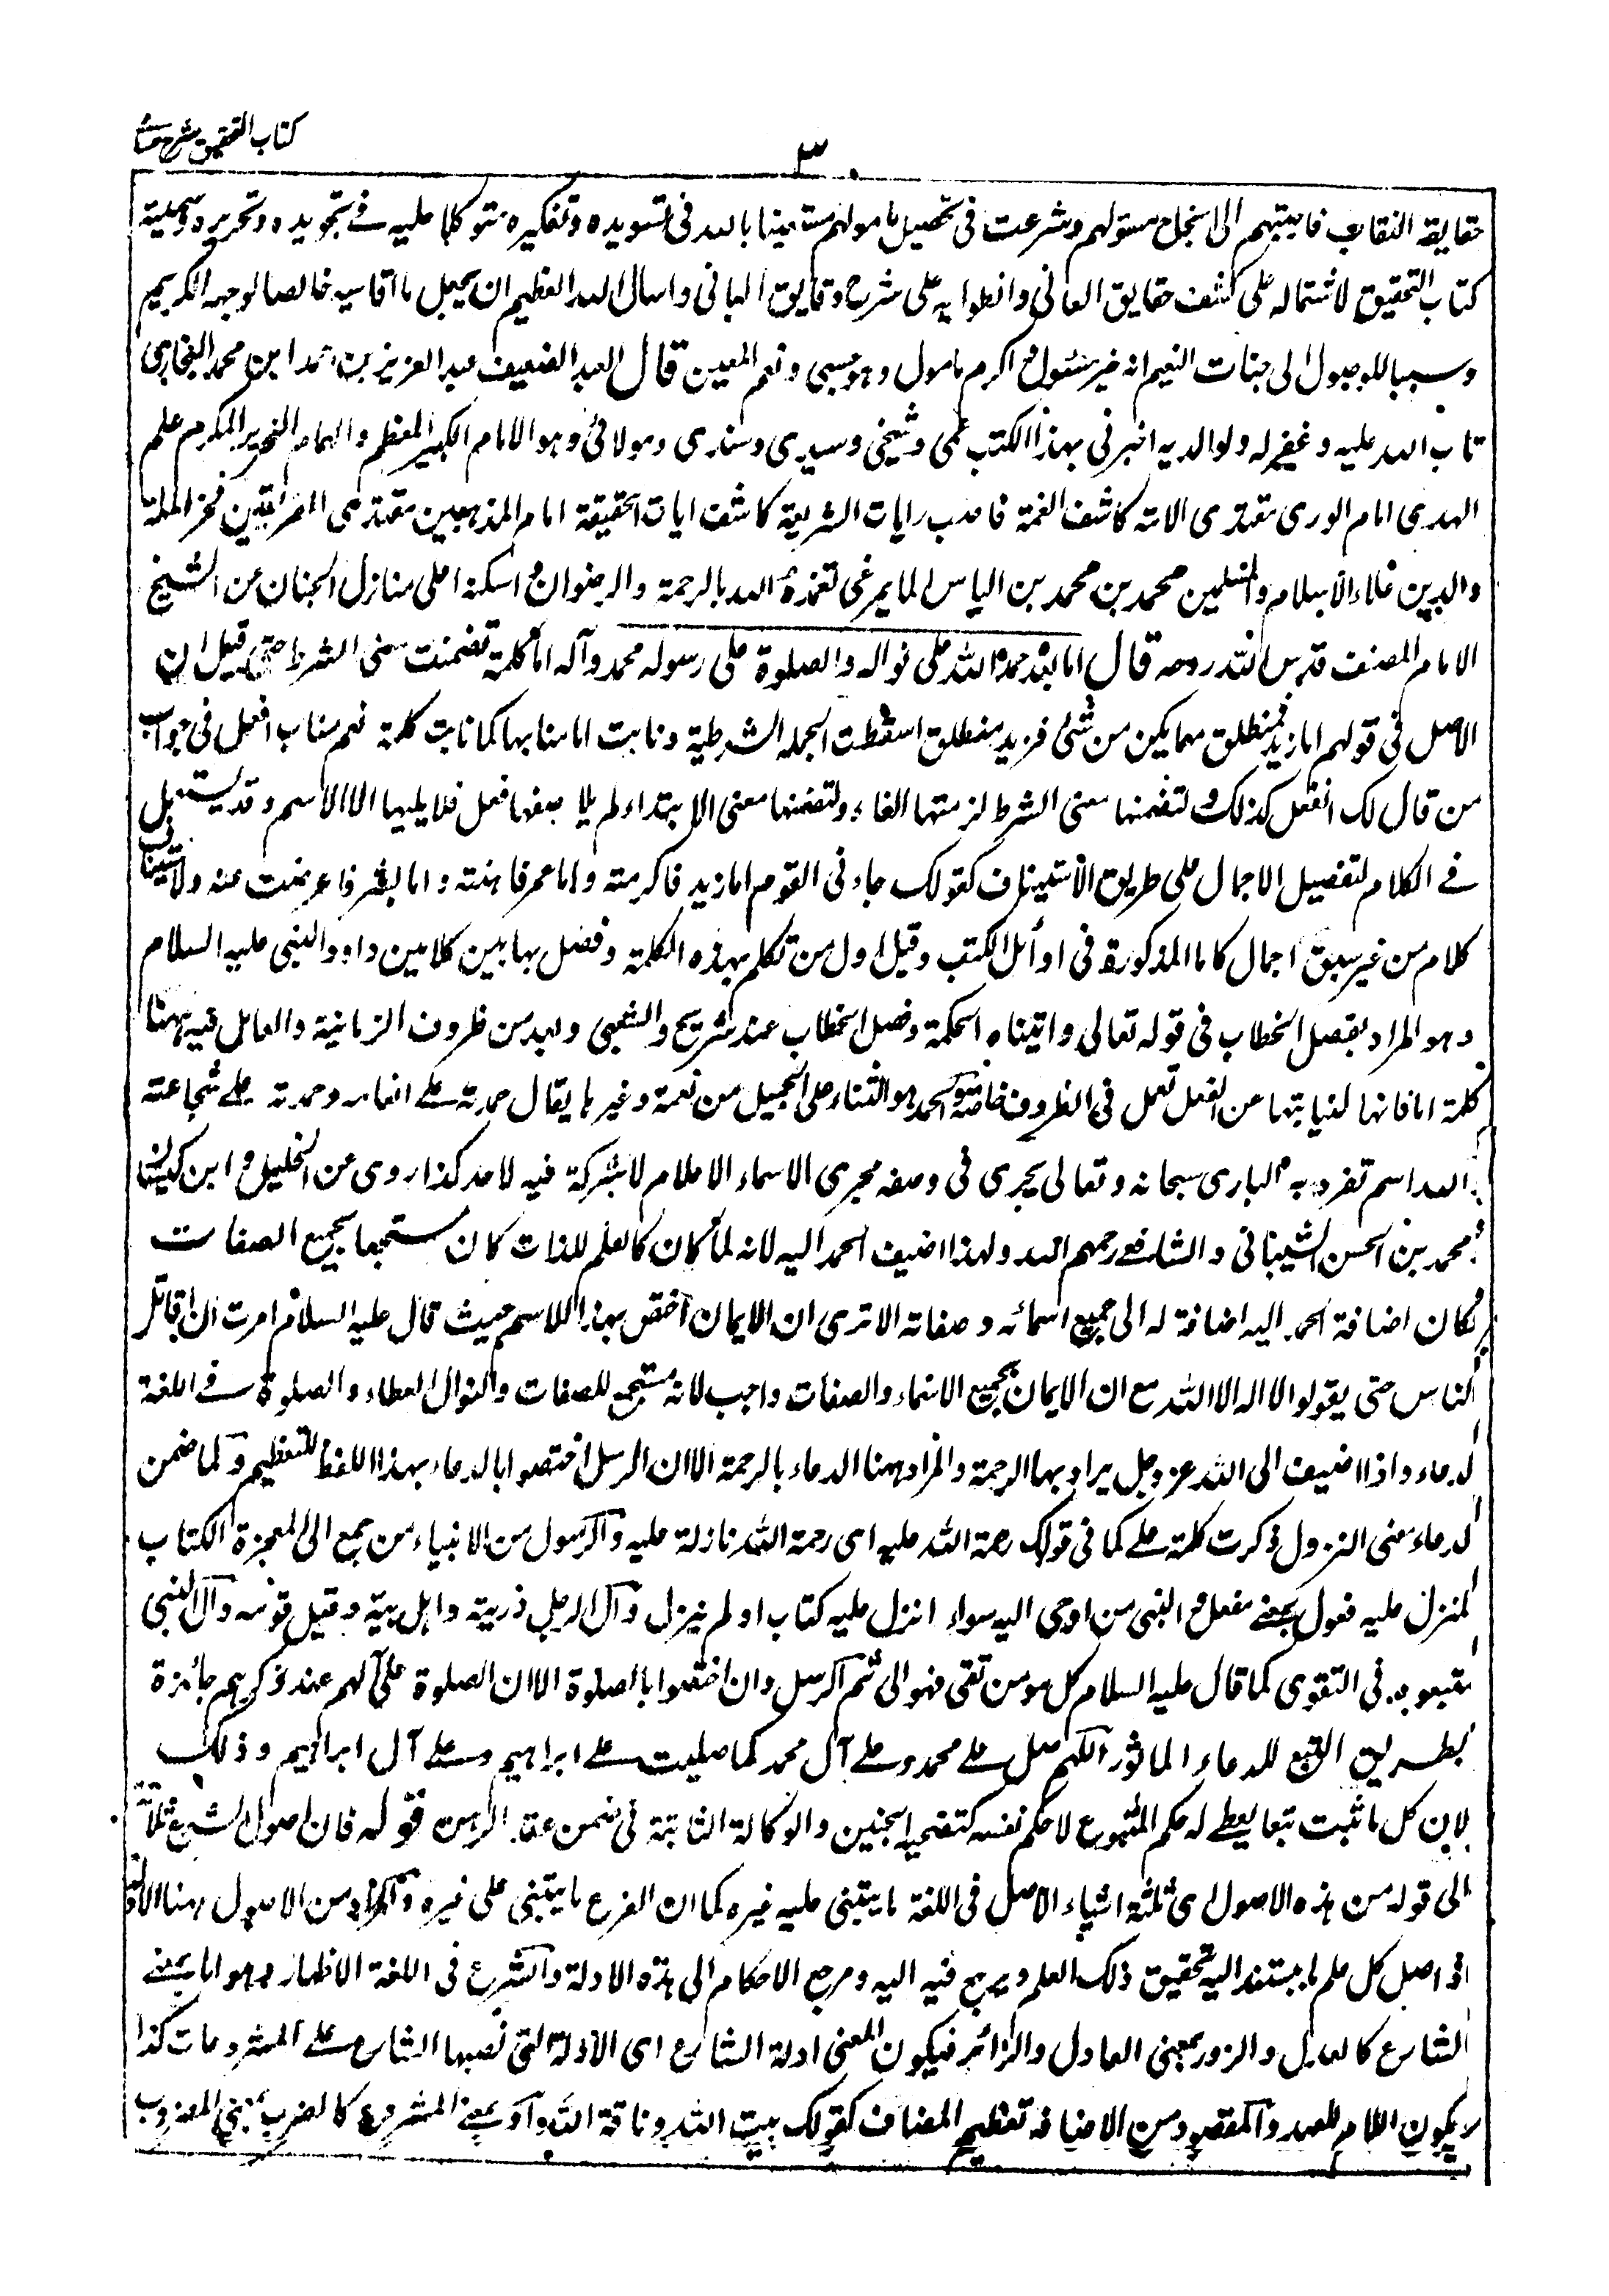 كتاب التحقيق شرح حسامى
٣
حقايقه النقاب فاجبتهم الى انجاح مسئولهم وشرعت فى تحصيل مامولهم مستعينا بالله فى تسويده وتفكيره متوكلا عليه فے تجويده وتحريره وسميته
كتاب التحقيق لاشتماله على كشف حقايق المعانى وانطوايه على شرح دقايق المبانى واسال الله العظيم ان يجعل ما اقاسيه خالصا لوجهه الكريم
وسببا للوصول الى جنات النعيم انه خير مسئول و اكرم مامول وهو حسبى ونعم المعين قال العبد الضعيف عبد العزيز بن احمد ابن محمد البخارى
تاب الله عليه وغفر له ولوالديه اخبرنى بهذا الكتب عمى وشيخى وسيدى وسندى ومولائى وهو الامام الكبير المعظم والهمام النحرير المكرم علم
الهدى امام الورى مقتدى الامة كاشف الغمة ناصب رايات الشريعة كاشف ايات الحقيقة امام المذهبين مقتدى الفريقين فخر الملة
والدين علاء الاسلام والمسلمين محمد بن محمد بن الياس المايمرغى تغمده الله بالرحمة والرضوان و اسكنه اعلى منازل الجنان عن الشيخ
الامام المصنف قدس الله روحه قال اما بعد حمد الله على نواله والصلوة على رسوله محمد وآله اما كلمة تضمنت معنى الشرط حتى قيل ان
الاصل فى قولهم اما زيد فمنطلق مهما يكن من شئ فزيد منطلق اسقطت الجمله الشرطية ونابت اما منابها كما نابت كلمة نعم مناب افعل فى جواب
من قال لك اتفعل كذلك و لتضمنها معنى الشرط لزمتها الفاء ولتضمنها معنى الابتداء لم يلاصقها فعل فلا يليها الا الاسم وقد يستعمل
فے الكلام لتفصيل الاجمال على طريق الاستيناف كقولك جاءنى القوم اما زيد فاكرمته واما عمر فاهنته واما بشر فاعرضت عنه ولاستيناف
كلام من غير سبق اجمال كاما المذكورة فى اوائل الكتب وقيل اول من تكلم بهذه الكلمة وفصل بها بين كلامين داود النبى عليه السلام
وهو المراد بفصل الخطاب فى قوله تعالى واتيناه الحكمة وفصل الخطاب عند شريح والشعبى وبعد من ظروف الزمانية والعامل فيه ههنا
كلمة اما فانها لنيابتها عن الفعل تعمل فى الظروف خاصة والحمد هو الثناء على الجميل من نعمة وغيرها يقال حمدته علے انعامه وحمدته علے شجاعته
الله اسم تفرد به البارى سبحانه وتعالى يجرى فى وصفه مجرى الاسماء الاعلام لا شركة فيه لاحد كذا روى عن الخليل و ابن كيسان
محمد بن الحسن الشيبانى والشافعے رحمهم الله ولهذا اضيف الحمد اليه لانه لما كان كالعلم للذات كان مستجمعا لجميع الصفات
فكان اضافة الحمد اليه اضافة له الى جميع اسمائه وصفاته الا ترى ان الايمان اختص بهذا الاسم حيث قال عليه السلام امرت ان اقاتل
الناس حتى يقولوا لا اله الا الله مع ان الايمان بجميع الاسماء والصفات واجب لانه مستجمع للصفات والنوال العطاء والصلوة فے اللغة
الدعاء واذا اضيف الى الله عز وجل يراد بها الرحمة والمراد ههنا الدعاء بالرحمة الا ان الرسل اختصوا بالدعاء بهذا اللفظ للتعظيم ولما ضمن
الدعاء معنى النزول ذكرت كلمة علے كما فى قولك رحمة الله عليه اى رحمة الله نازلة عليه والرسول من الانبياء من جمع الى المعجزة الكتاب
المنزل عليه فعول بمعنے مفعل و النبى من اوحى اليه سواء انزل عليه كتاب او لم ينزل وآل الرجل ذريته واهل بيته وقيل قومه وآل النبى
متبعوه فى التقوى كما قال عليه السلام كل مومن تقى فهو الى ثم الرسل وان اختصوا بالصلوة الا ان الصلوة على آلهم عند ذكرهم جائزة
بطريق التبع للدعاء الماثور اللهم صل علے محمد وعلے آل محمد كما صليت علے ابراهيم وعلے آل ابراهيم وذلك
لان كل ما ثبت تبعا يعطے له حكم المتبوع لا حكم نفسه كتضحية الجنين والوكالة الثابتة فى ضمن عقد الرهن قوله فان اصول الشرع ثلاثة
الى قوله من هذه الاصول اى ثلثة اشياء الاصل فى اللغة ما يبتنى عليه غيره كما ان الفرع ما يبتنى على غيره والمراد من الاصول ههنا الادلة
اذ اصل كل علم ما يستند اليه تحقيق ذلك العلم ويرجع فيه اليه ومرجع الاحكام الى هذه الادلة والشرع فى اللغة الاظهار وهو اما بمعنے
الشارع كالعدل والزور بمعنى العادل والزائر فيكون المعنى ادلة الشارع اى الادلة التى نصبها الشارع علے المشروعات كذا
يكون اللام للعهد والمقصود من الاضافه تعظيم المضاف كقولك بيت الله وناقة الله واو بمعنے المشروع كالضرب بمعنى المضروب